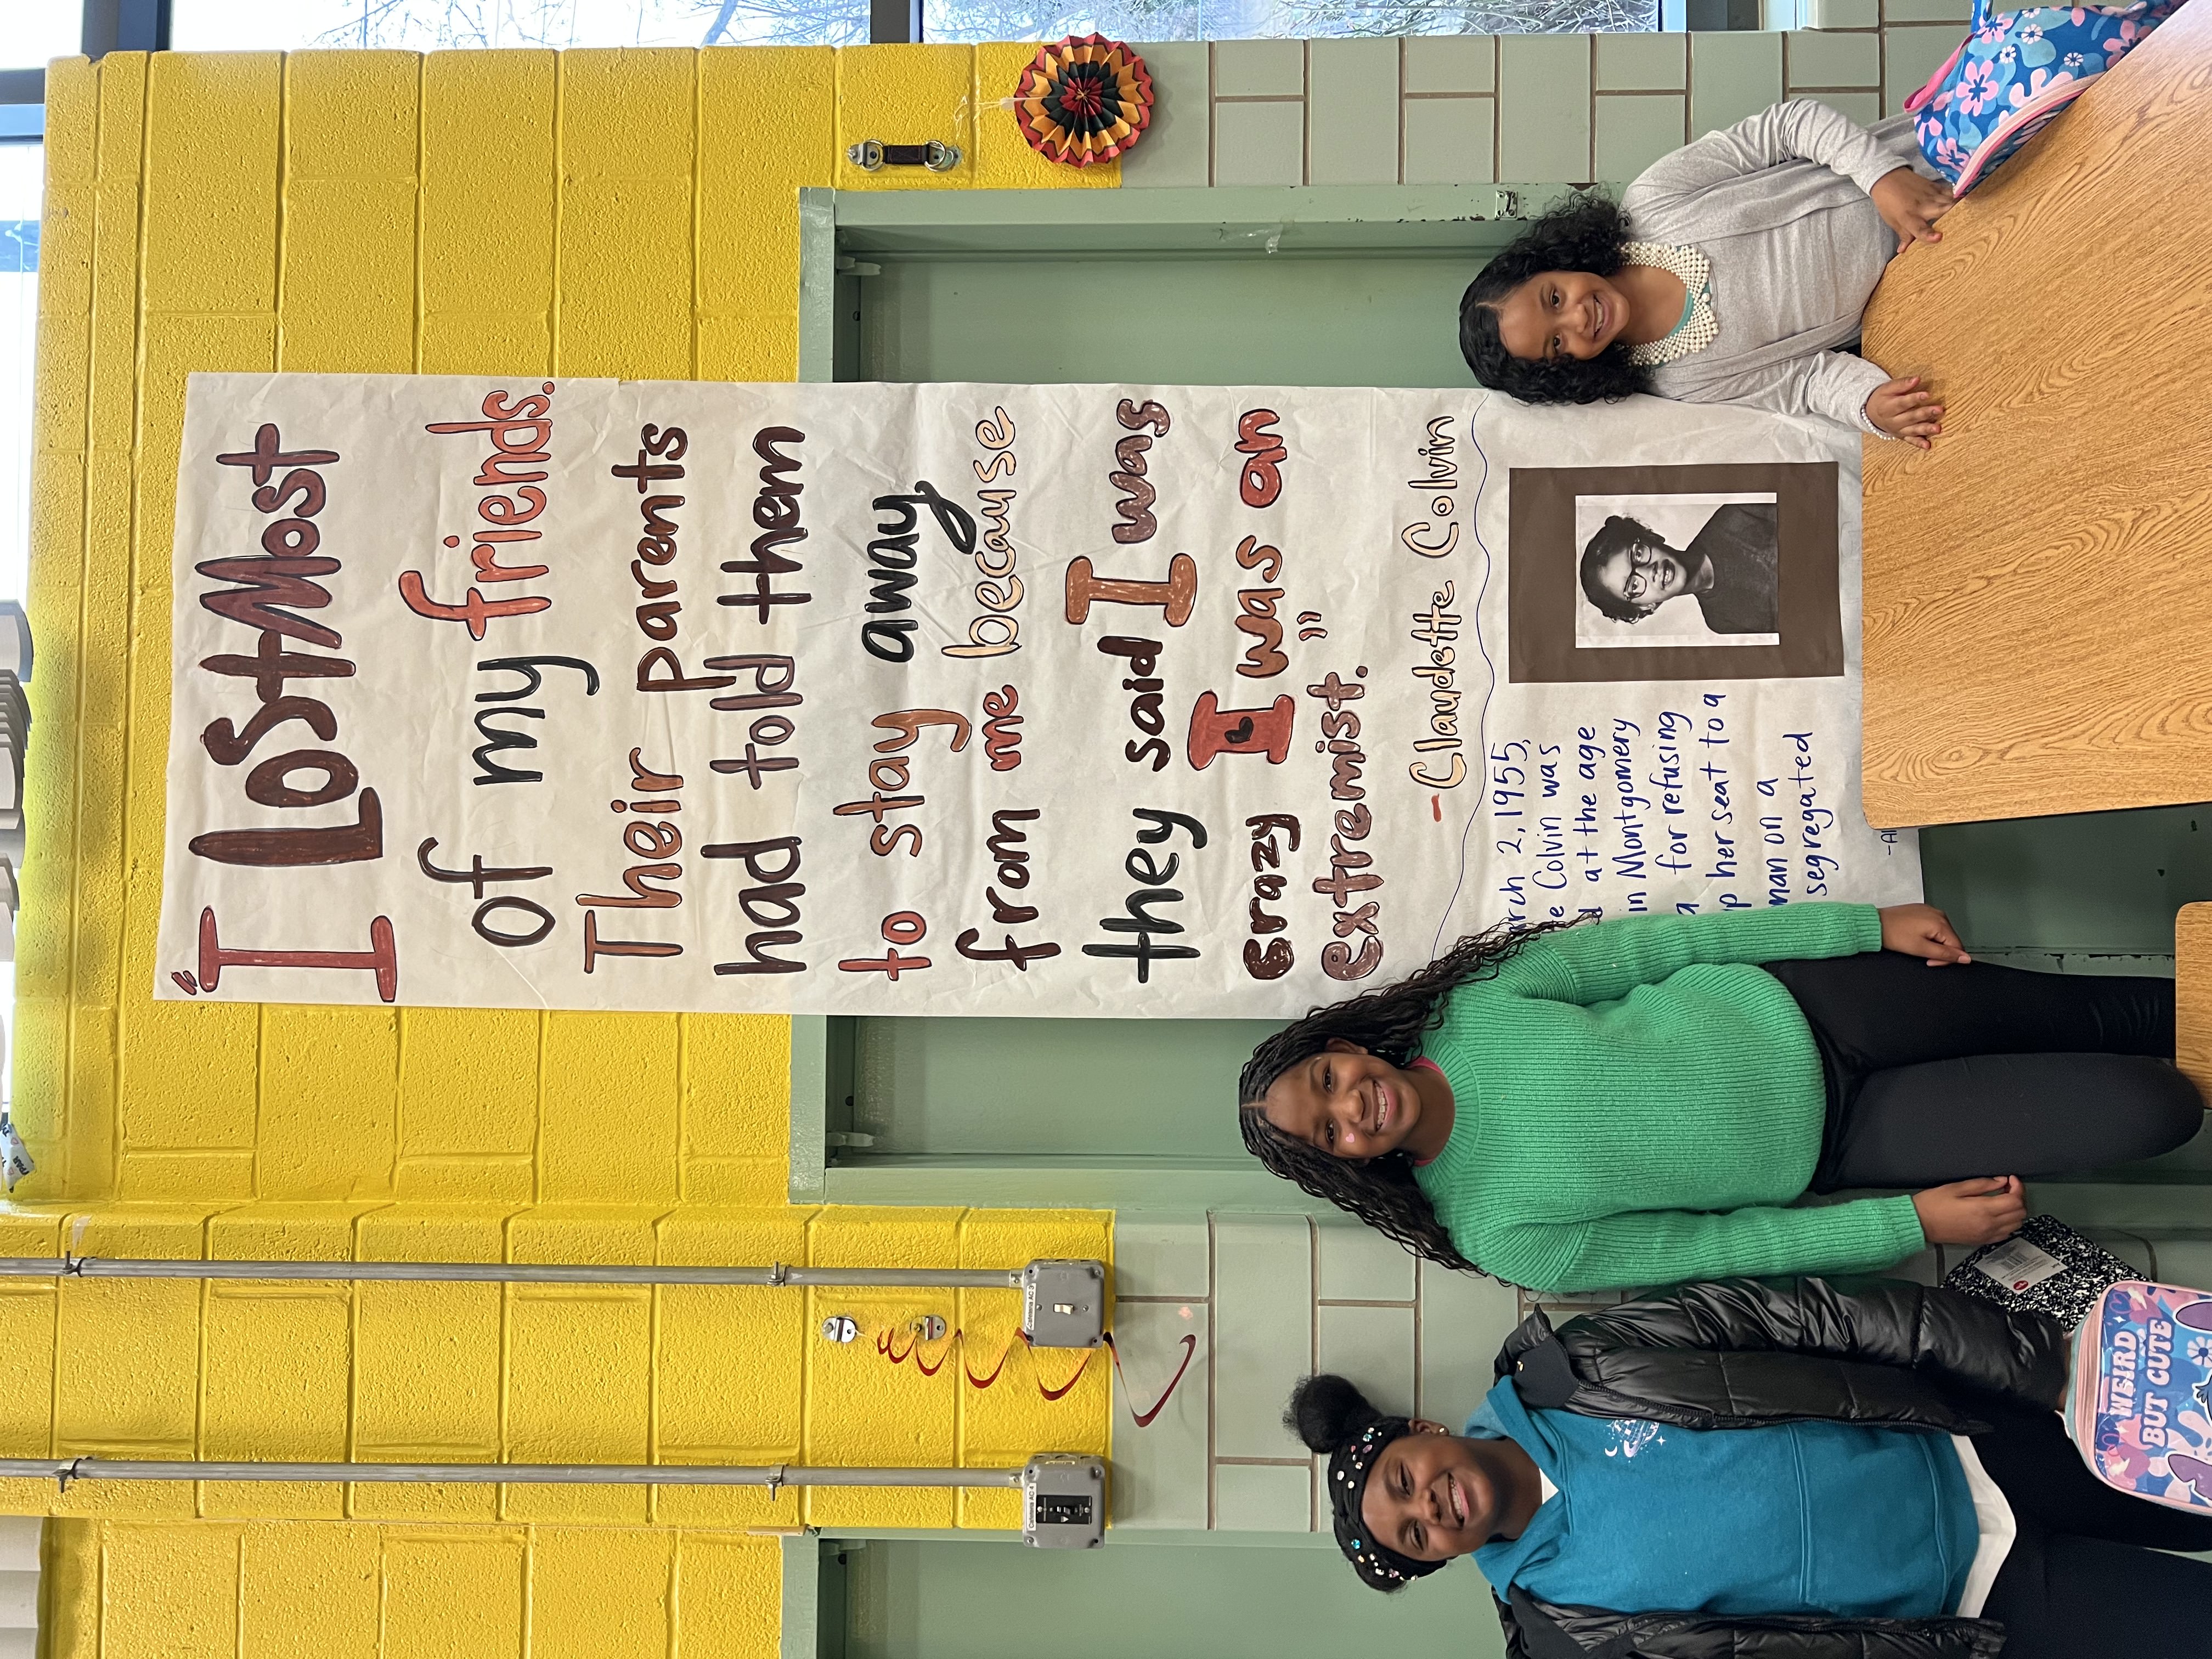 "I Lost Most
of my friends.
Their parents
had told them
to stay away
from me because
they said I was
crazy I was an
extremist."
-Claudette Colvin
2, 1955,
Colvin was
at the age
in Montgomery
for refusing
her seat to a
man on a
segregated
Cafeteria AC 4
Cafeteria AC 3
WEIRD
BUT CUTE